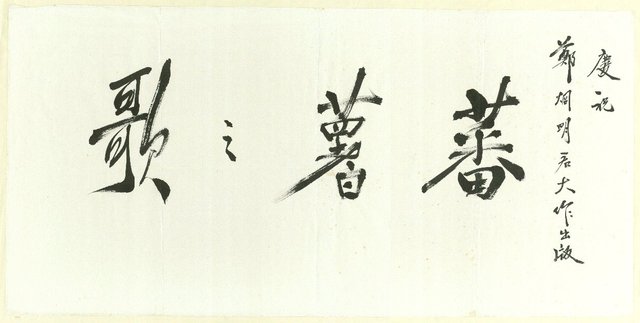 慶祝
鄭炯明君大作出版
蕃薯之歌